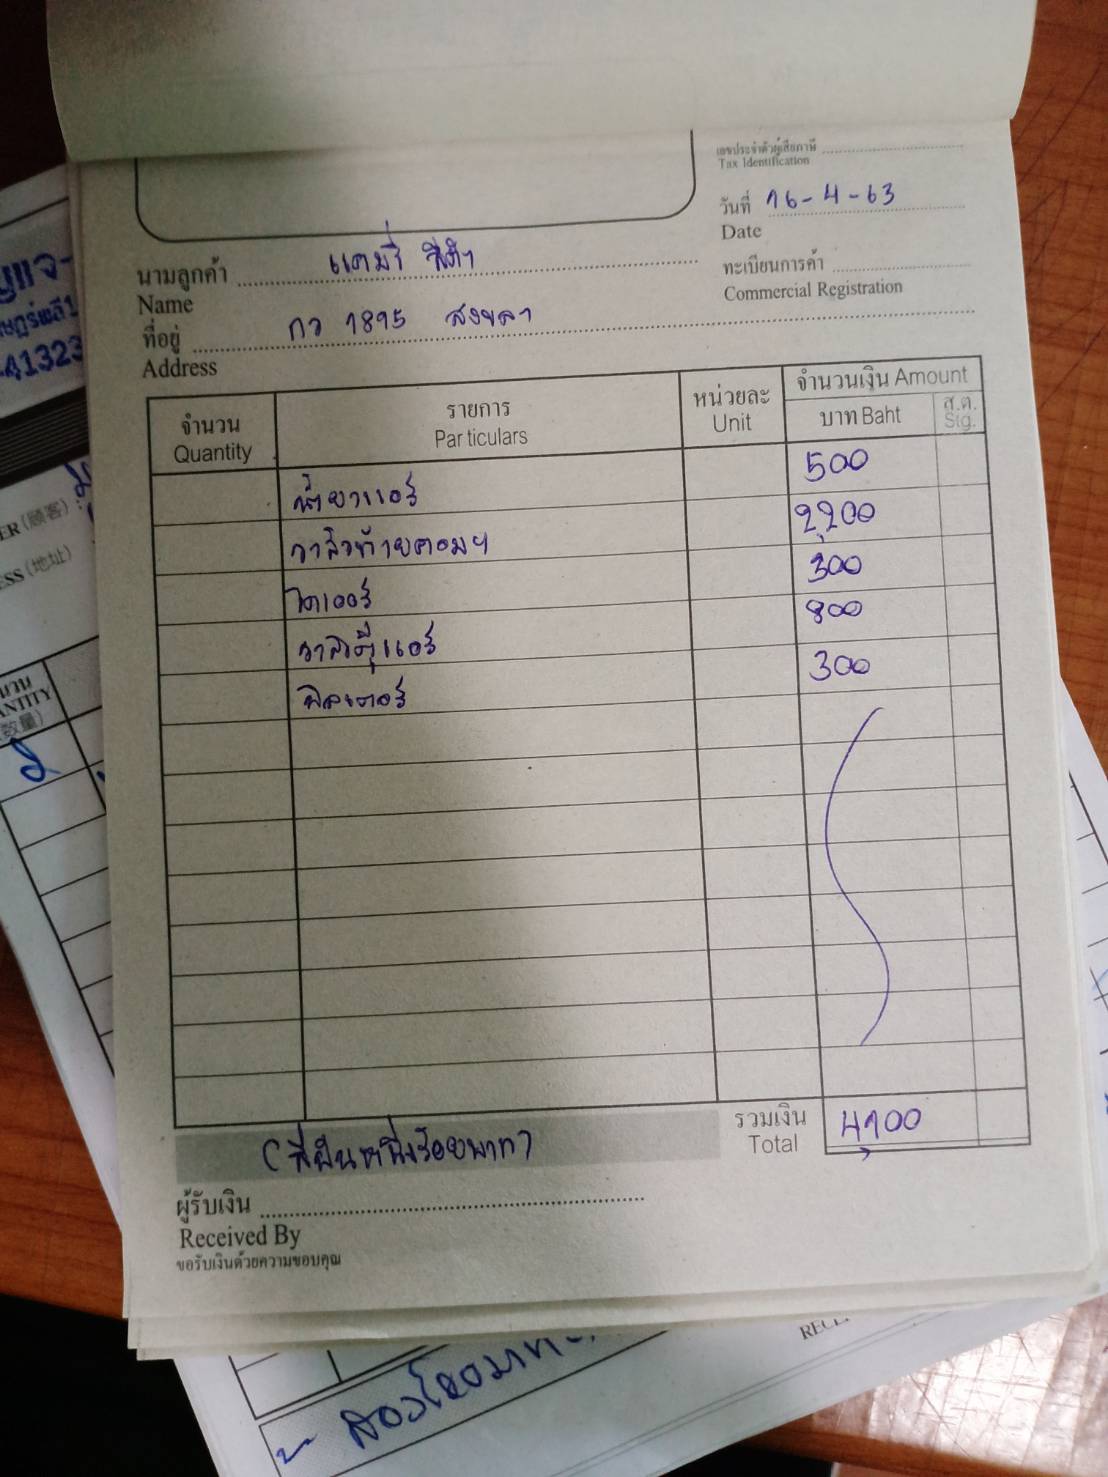 เลขประจำตัวผู้เสียภาษี
Tax Identification
วันที่ 16-4-63
Date
นามลูกค้า แคมรี่ สีดำ
Name
ทะเบียนการค้า
Commercial Registration
ที่อยู่ กว 1895 สงขลา
Address
จำนวน
Quantity
รายการ
Particulars
หน่วยละ
Unit
จำนวนเงิน Amount
บาท Baht
ส.ต.
Stg.
น้ำยาแอร์ 500
วาล์วท้ายคอมฯ 2,200
ไดเออร์ 300
วาล์วตู้แอร์ 800
ฟิลเตอร์ 300
(สี่พันหนึ่งร้อยบาท)
รวมเงิน 4100
Total
ผู้รับเงิน
Received By
ขอรับเงินด้วยความขอบคุณ
41323
ER (顧客)
ESS (地址)
ANTITY
数量)
2